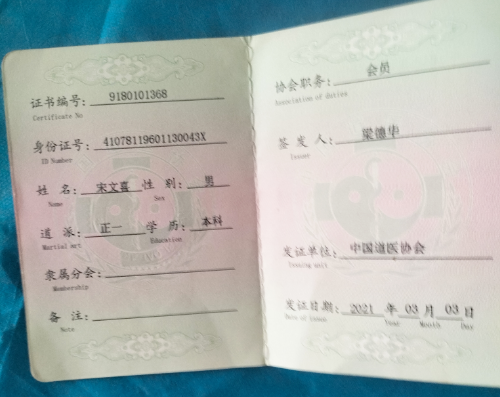 证书编号： 9180101368
Certificate No
身份证号： 41078119601130043X
ID Number
姓 名： 宋文喜 性 别： 男
Name Sex
道 派： 正一 学 历： 本科
Martial art Education
隶属分会：
Membership
备 注：
Note
协会职务： 会员
Association of duties
签 发 人： 梁德华
Issuer
发证单位： 中国道医协会
Issuing unit
发证日期： 2021 年 03 月 03 日
Date of issue Year Month Day